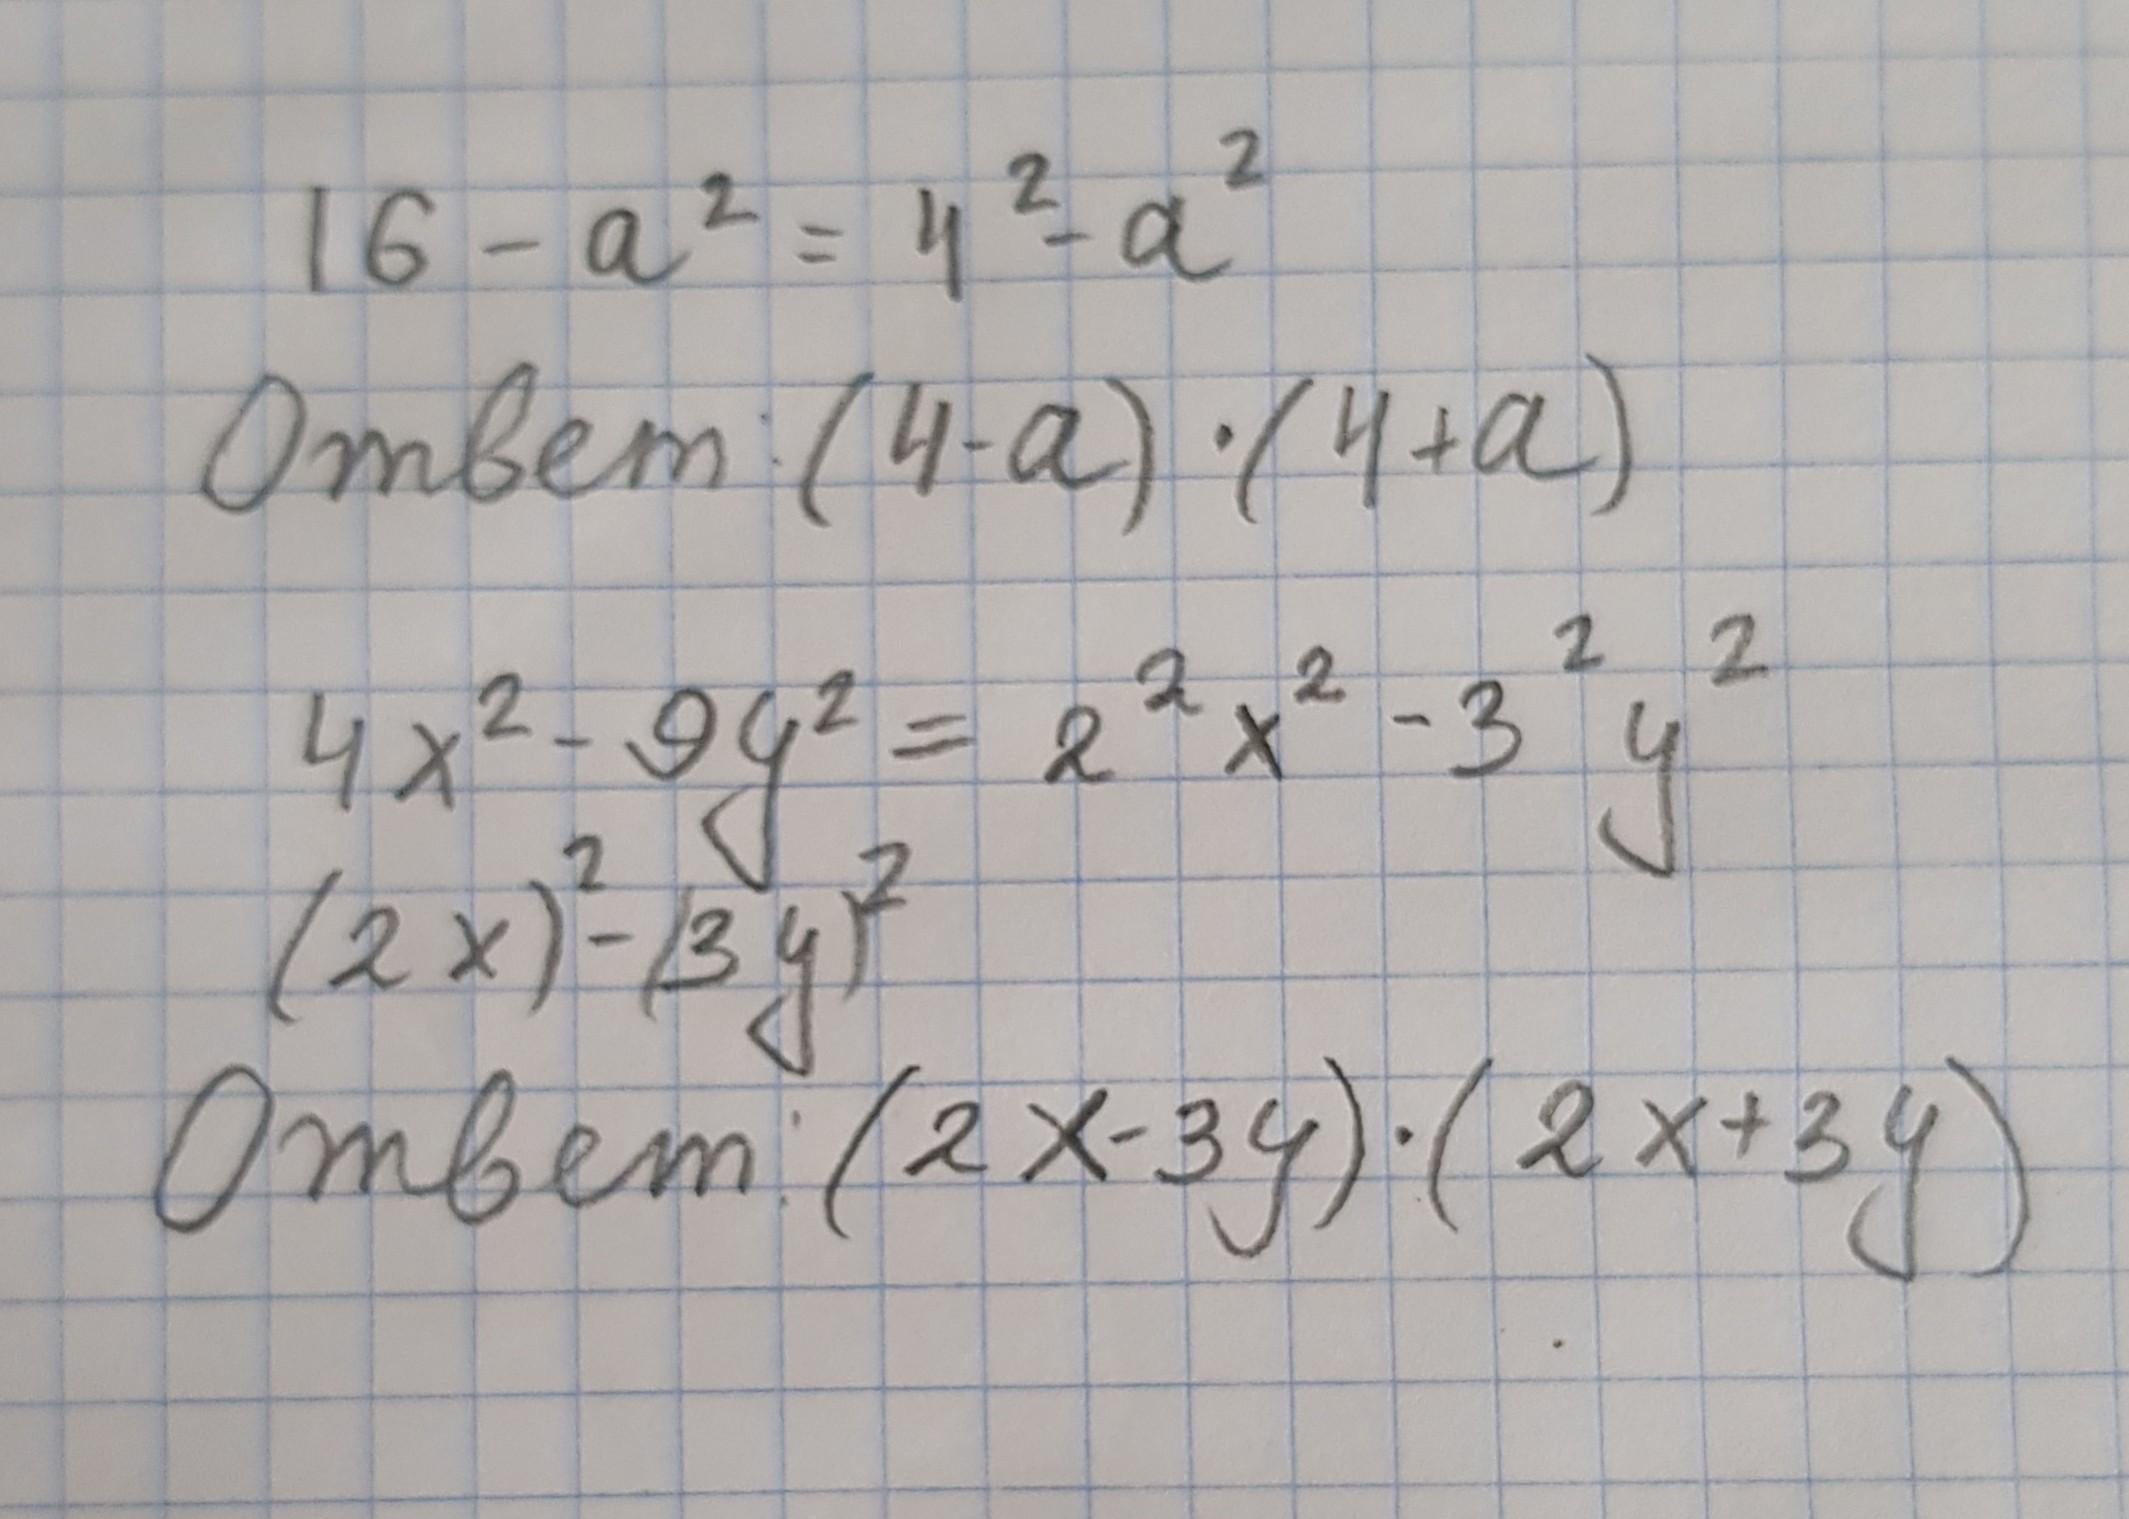 16 - a² = 4² - a²
Ответ: (4-a)·(4+a)
4x² - 9y² = 2²x² - 3²y²
(2x)² - (3y)²
Ответ: (2x-3y)·(2x+3y)